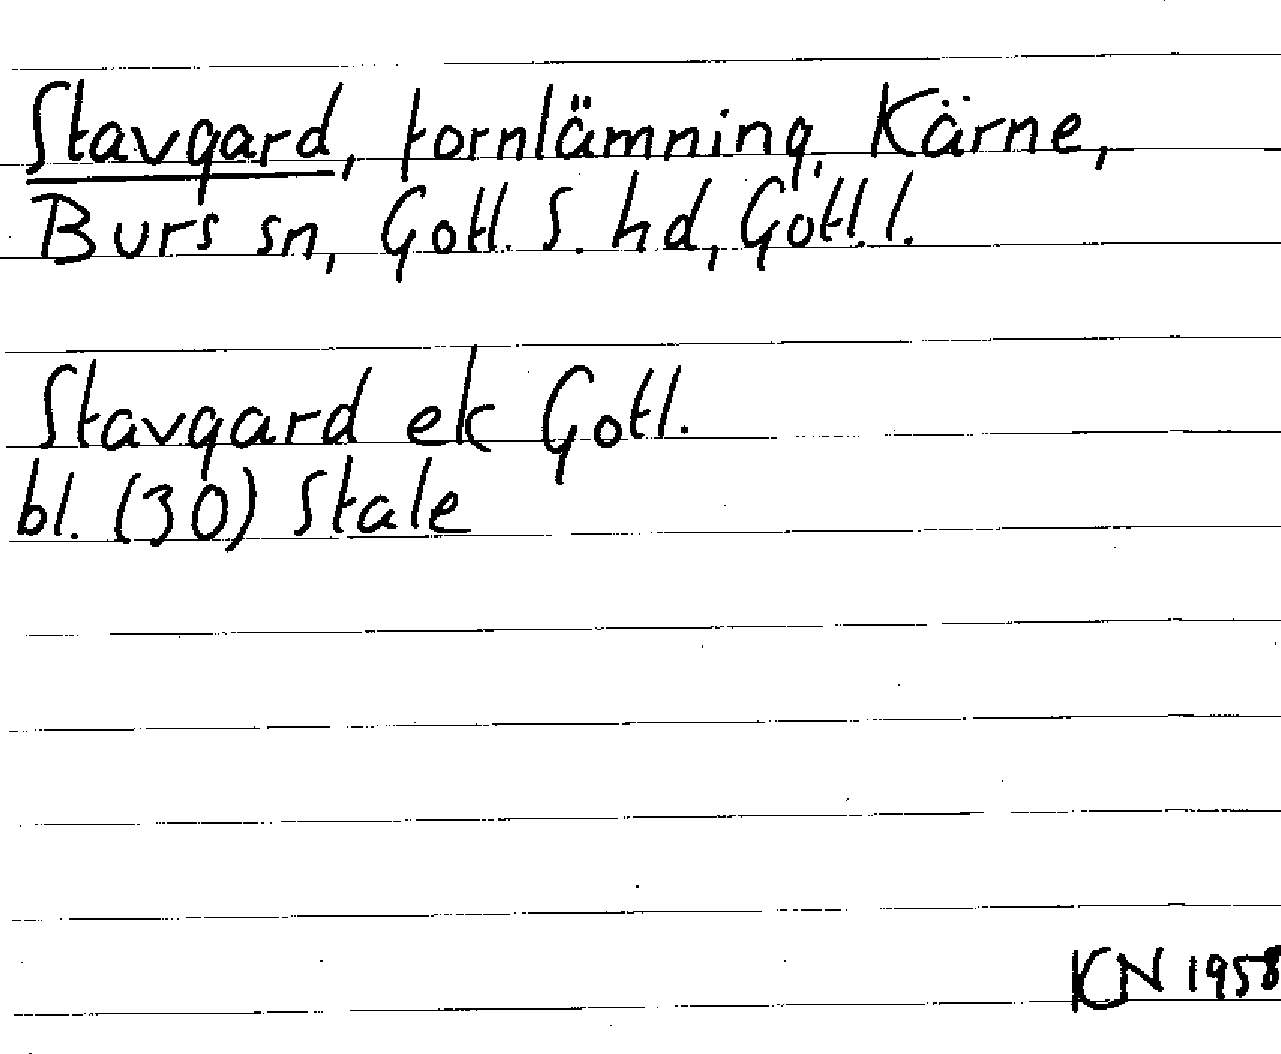 Stavgard, fornlämning, Kärne,
Burs sn, Gotl. S. hd, Gotl. l.
Stavgard ek Gotl.
bl. (30) Stale
KN 1958